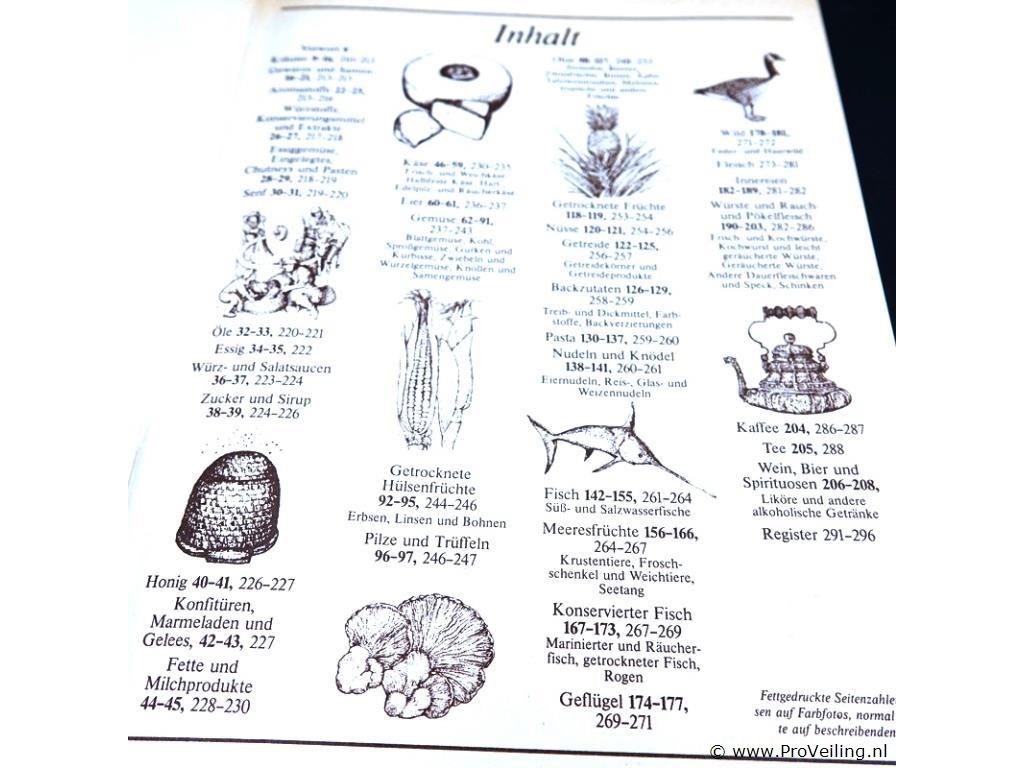 Inhalt
Vorwort 6
Kräuter
Gewürze und Samen
Aromastoffe 22-25,
Würzstoffe,
Konservierungsmittel
und Extrakte
26-27, 217-218
Essiggemüse,
Eingelegtes,
Chutneys und Pasten
28-29, 218-219
Senf 30-31, 219-220
Öle 32-33, 220-221
Essig 34-35, 222
Würz- und Salatsaucen
36-37, 223-224
Zucker und Sirup
38-39, 224-226
Honig 40-41, 226-227
Konfitüren,
Marmeladen und
Gelees, 42-43, 227
Fette und
Milchprodukte
44-45, 228-230
Käse 46-59, 230-235
Frisch- und Weichkäse
Halbfeste Käse, Hart-
Edelpilz- und Räucherkäse
Eier 60-61, 236-237
Gemüse 62-91,
237-243
Blattgemüse, Kohl,
Sproßgemüse, Gurken und
Kürbisse, Zwiebeln und
Wurzelgemüse, Knollen und
Samengemüse
Getrocknete
Hülsenfrüchte
92-95, 244-246
Erbsen, Linsen und Bohnen
Pilze und Trüffeln
96-97, 246-247
Obst
Zitrusfrüchte,
tropische und andere
Früchte
Getrocknete Früchte
118-119, 253-254
Nüsse 120-121, 254-256
Getreide 122-125,
256-257
Getreidekörner und
Getreideprodukte
Backzutaten 126-129,
258-259
Treib- und Dickmittel, Farb-
stoffe, Backverzierungen
Pasta 130-137, 259-260
Nudeln und Knödel
138-141, 260-261
Eiernudeln, Reis-, Glas- und
Weizennudeln
Fisch 142-155, 261-264
Süß- und Salzwasserfische
Meeresfrüchte 156-166,
264-267
Krustentiere, Frosch-
schenkel und Weichtiere,
Seetang
Konservierter Fisch
167-173, 267-269
Marinierter und Räucher-
fisch, getrockneter Fisch,
Rogen
Geflügel 174-177,
269-271
Wild 178-181,
271-272
Feder- und Haarwild
Fleisch 273-281
Innereien
182-189, 281-282
Würste und Rauch-
und Pökelfleisch
190-203, 282-286
Frisch- und Kochwürste,
Kochwurst und leicht
geräucherte Würste,
Geräucherte Würste,
Andere Dauerfleischwaren
und Speck, Schinken
Kaffee 204, 286-287
Tee 205, 288
Wein, Bier und
Spirituosen 206-208,
Liköre und andere
alkoholische Getränke
Register 291-296
Fettgedruckte Seitenzahle
sen auf Farbfotos, normal
te auf beschreibenden
© www.ProVeiling.nl